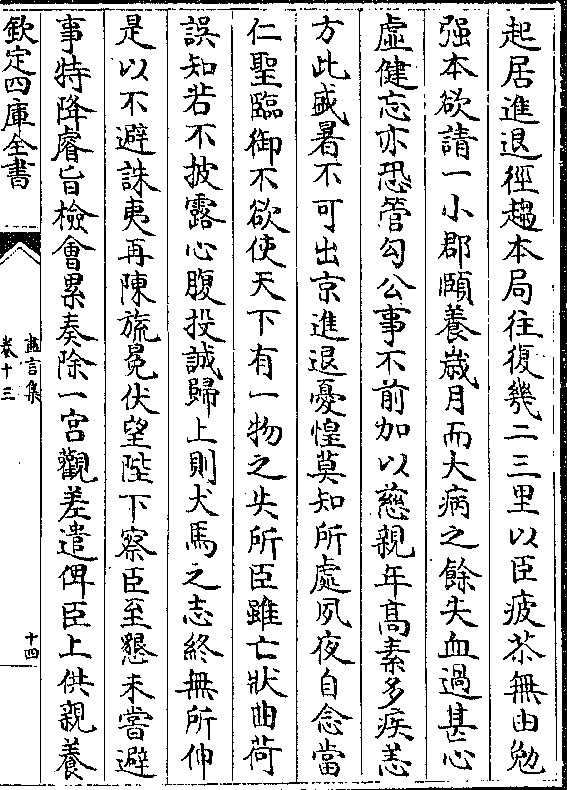 起居進退徑趨本局往復幾二三里以臣疲苶無由勉
强本欲請一小郡頤養歲月而大病之餘失血過甚心
虛健忘亦恐管勾公事不前加以慈親年高素多疾恙
方此盛暑不可出京進退憂惶莫知所處夙夜自念當
仁聖臨御不欲使天下有一物之失所臣雖亡狀曲荷
誤知若不披露心腹投誠歸上則犬馬之志終無所伸
是以不避誅夷再陳旒冕伏望陛下察臣至懇未嘗避
事特降睿旨檢會累奏除一宮觀差遣俾臣上供親養
欽定四庫全書
盡言集
卷十三
十四